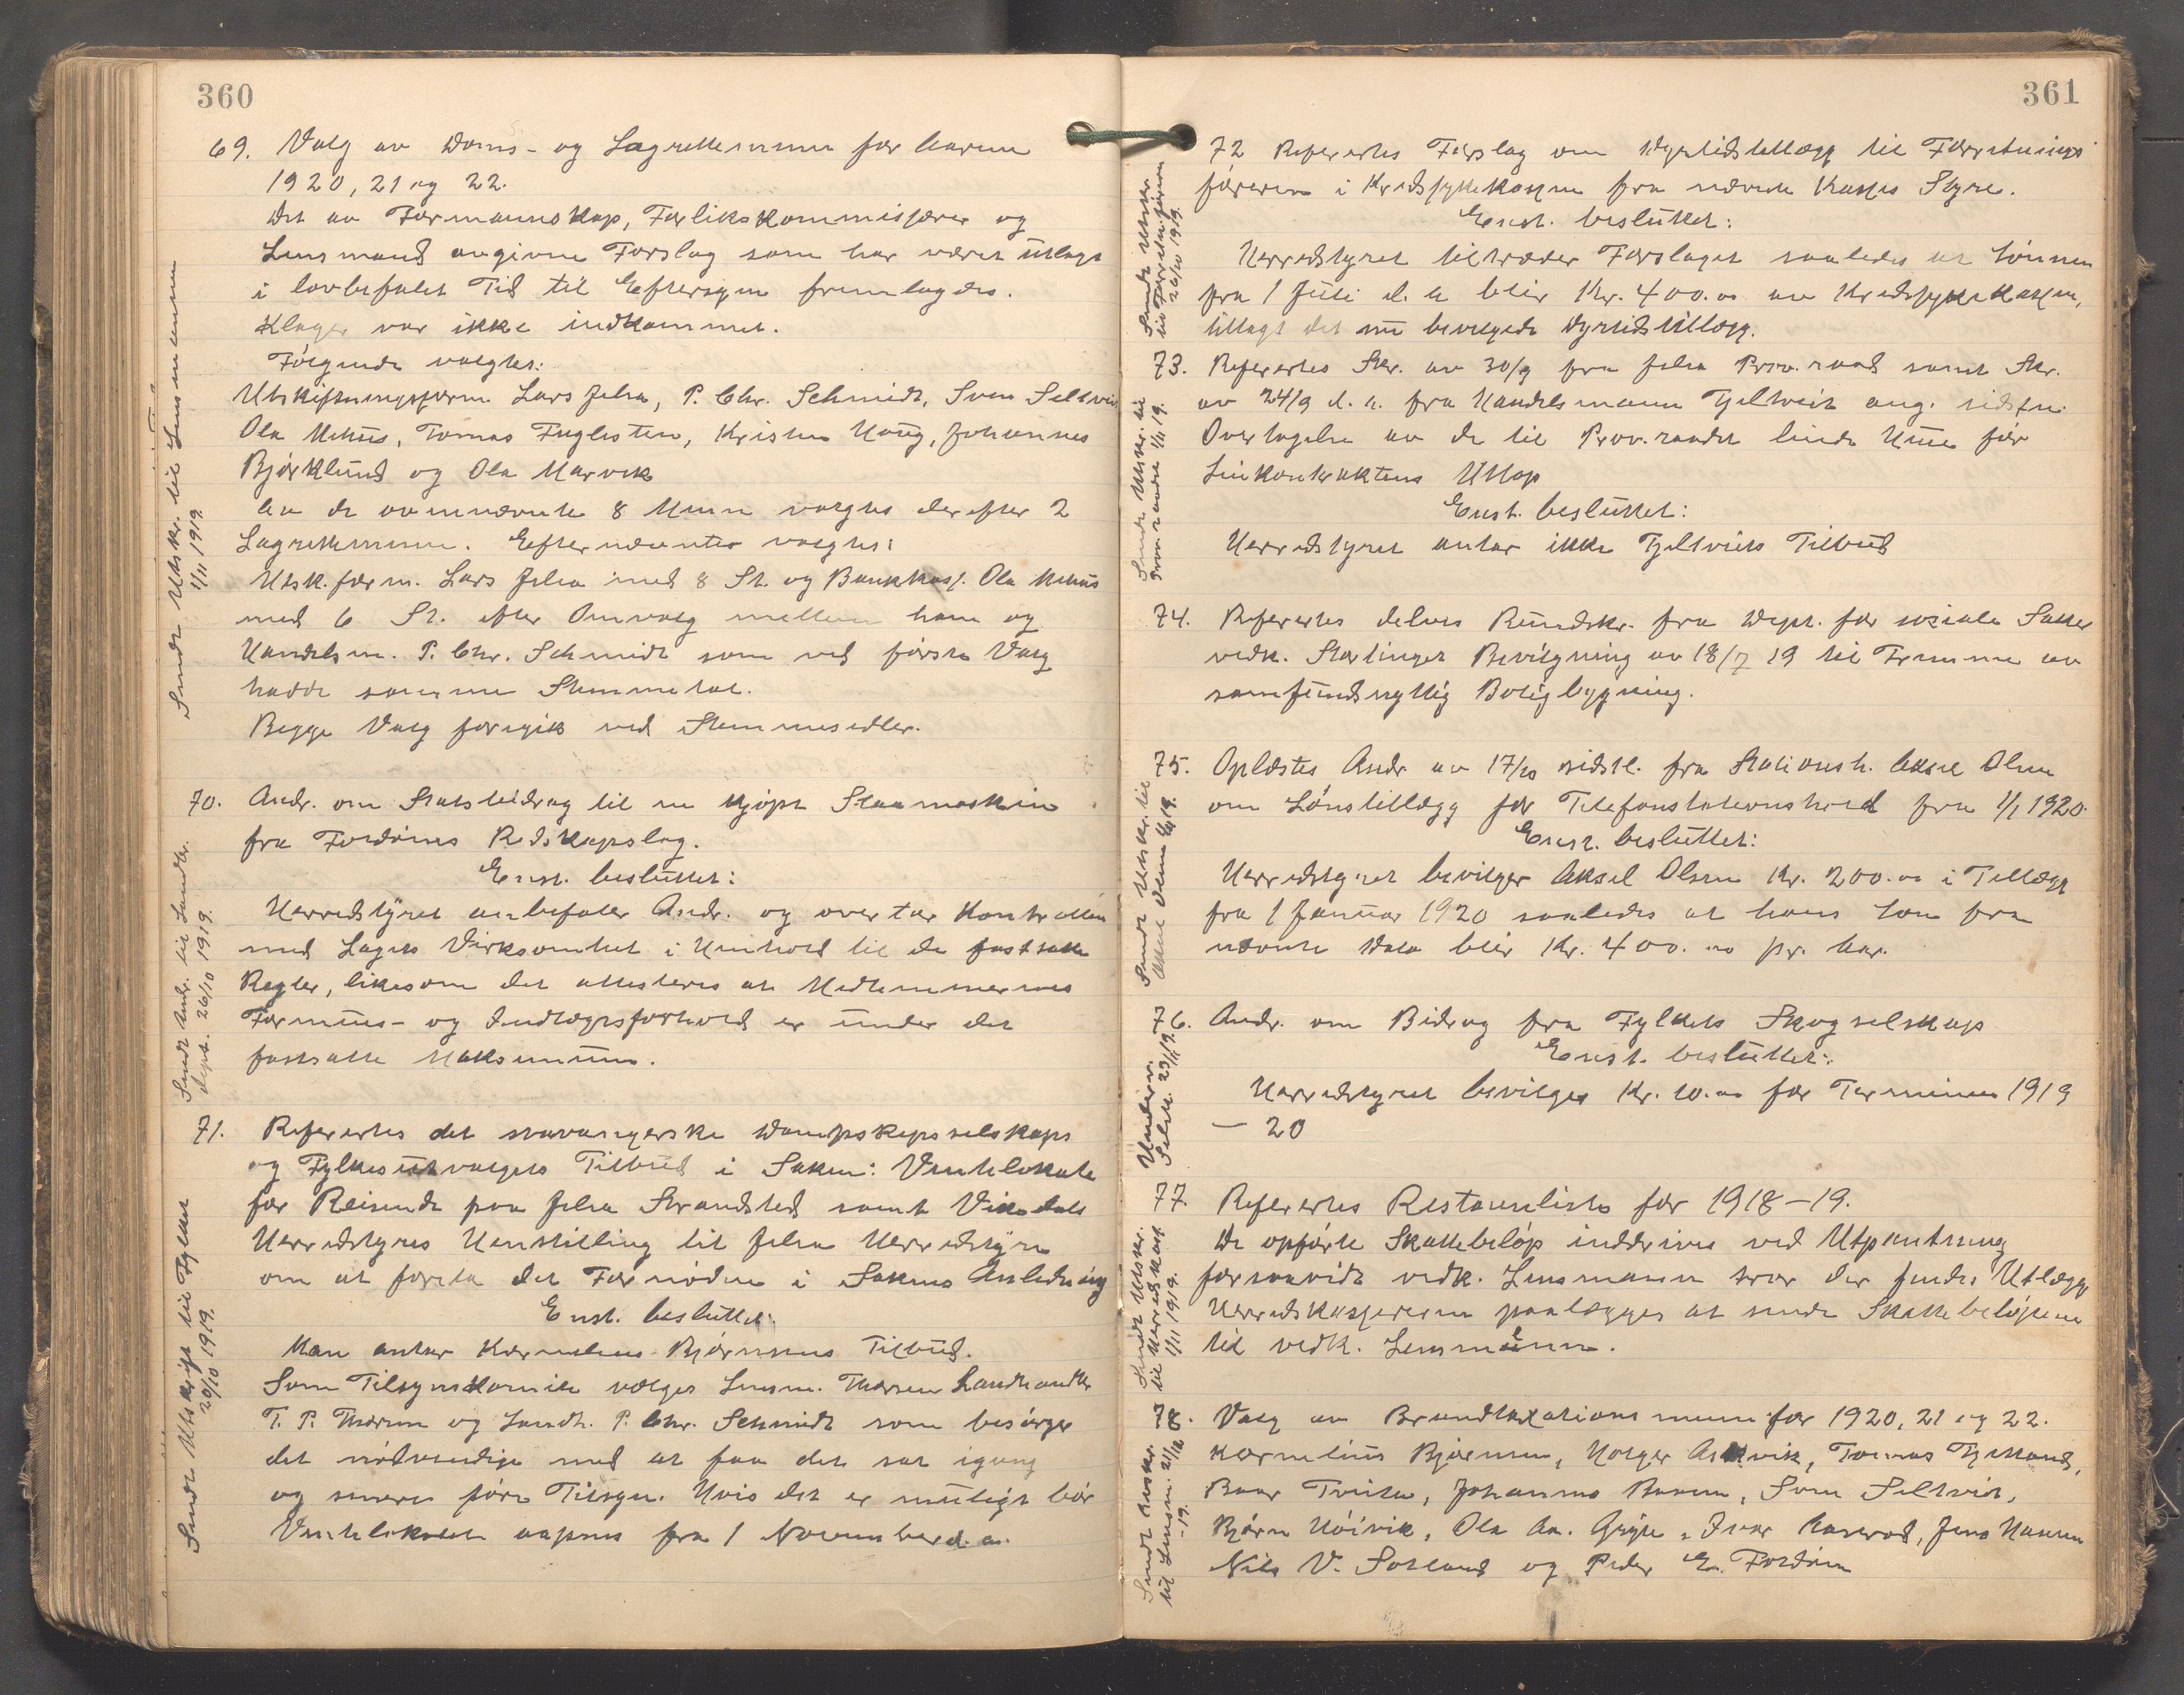 360
69. Valg av Doms- og Lagrettemenn for Aarene
1920, 21 og 22.
Det av Formannskap, Forlikskommisjærer og
Lensmand avgivne Forslag som har været utlagt
i lovbefalet Tid til Eftersyn fremlagdes.
Klager var ikke indkommet.
Følgende valgtes:
Utskiftningsform. Lars Jelsa, P. Chr. Schmidt, Sven Seltveit
Ola Mehus, Tomas Fuglesten, Kristen Haug, Johannes
Bjørklund og Ola Marvik
Av de ovennævnte 8 Menn valgtes derefter 2
Lagrettemenn. Efternævnter valgtes:
Utsk.form. Lars Jelsa med 8 St. og Bankkas. Ola Mehus
med 6 St. efter Omvalg mellem ham og
Handelsm. P. Chr. Schmidt som ved første Valg
hadde samme Stemmetal.
Begge Valg foregik ved Stemmesedler.
Sendt Utskr. til Lensmannen
1/11 1919.
70. Andr. om Statsbidrag til en kjøpt Slaamaskin
fra Fordøines Redskapslag.
Enst. besluttet:
Herredstyret anbefaler Andr. og overtar Kontrollen
med Lagets Virksomhet i Henhold til de fastsatte
Regler, likesom det attesteres at Medlemmernes
Formues- og Indtægtsforhold er under det
fastsatte Maksimum.
Sendt Andr. til Landbr.
dept. 26/10 1919.
71. Refertes det stavangerske Dampskipsselskaps
og Fylkesutvalgets Tilbud i Saken: Ventelokale
for Reisende paa Jelsa Strandsted samt Vikedals
Herredstyres Henstilling til Jelsa Herredstyre
om at foreta det Fornødne i Sakens Anledning
Enst. besluttet:
Man antar Kornelius Bjørnsens Tilbud.
Som Tilsynskomite valges Lensm. Thorsen Landhandler
T. P. Thorsen og Landh. P. Chr. Schmidt som besørger
det nødvendige med at faa det sat igang
og senere føre Tilsyn. Hvis det er muligt bør
Ventelokalet aapnes fra 1 November d. a.
Sendt Utskrift til Fylket
20/10 1919.
361
72 Refertes Forslag om Dyrtidstillægg til Forretnings
føreren i Kredssykekassen fra nævnte Kasses Styre.
Enst. besluttet:
Herredstyret tiltræder Forslaget saaledes at Lønnen
fra 1 Juli d. a blir Kr. 400.00 av Kredssykekassen,
tillagt det nu bevilgede Dyrtidstillægg.
Sendt Utskr.
til Forretn.føreren
26/10 1919.
73. Refertes Skr. av 30/9 fra Jelsa Prov.raad samt Skr.
av 24/9 d. a. fra Handelsmann Tjeltveit ang. sidstn.
Overtagelse av de til Prov.raadet leiede Huse før
Leiekontraktens Utløp
Enst. besluttet:
Herredstyret antar ikke Tjeltveits Tilbud
Sendt Utskr. til
Prov.raadet 1/11 19.
74. Refertes delvis Rundskr. fra Dept. for sosiale Saker
vedk. Stortinget Bevilgning av 18/7 19 til Fremme av
samfundsnyttig Boligbygning.
75. Oplæstes Andr av 17/10 sidstl. fra Stationsh. Aksel Olsen
om Lønstillægg for Telefonstationshold fra 1/1 1920.
Enst. besluttet:
Herredstyret bevilger Aksel Olsen Kr. 200.00 i Tillægg
fra 1 Januar 1920 saaledes at hans Løn fra
nævnte Dato blir Kr. 400.00 pr. Aar.
Sendt Utskr. til
Aksel Olsen 1/11 19.
76. Andr. om Bidrag fra Fylkets Skogselskap
Enst. besluttet:
Herredstyret bevilger Kr. 10.00 for Terminen 1919
— 20
Underr.
Selsk. 23/11 19.
77. Refertes Restanseliste for 1918-19.
De opførte Skattebeløp inddrives ved Utpantning
forsaavidt vedk. Lensmann tror der findes Utlægg
Herredskassereren paalægges at sende Skattebeløpene
til vedk. Lensmenn.
Sendt Utskr.
til Herredskass.
1/11 1919.
78. Valg av Brandtaxationsmenn for 1920, 21 og 22.
Kornelius Bjørnsen, Holger Askvik, Tomas Tjelland,
Baar Tveita, Johannes Ravn, Sven Seltveit,
Bjørn Høivik, Ola Aa. Gryte, Ivar Aaserød, Jens Hansen
Nils V. Sørland og Peder E. Fordøin
Sendt Utskr.
til Lensm. 21/12
-19.